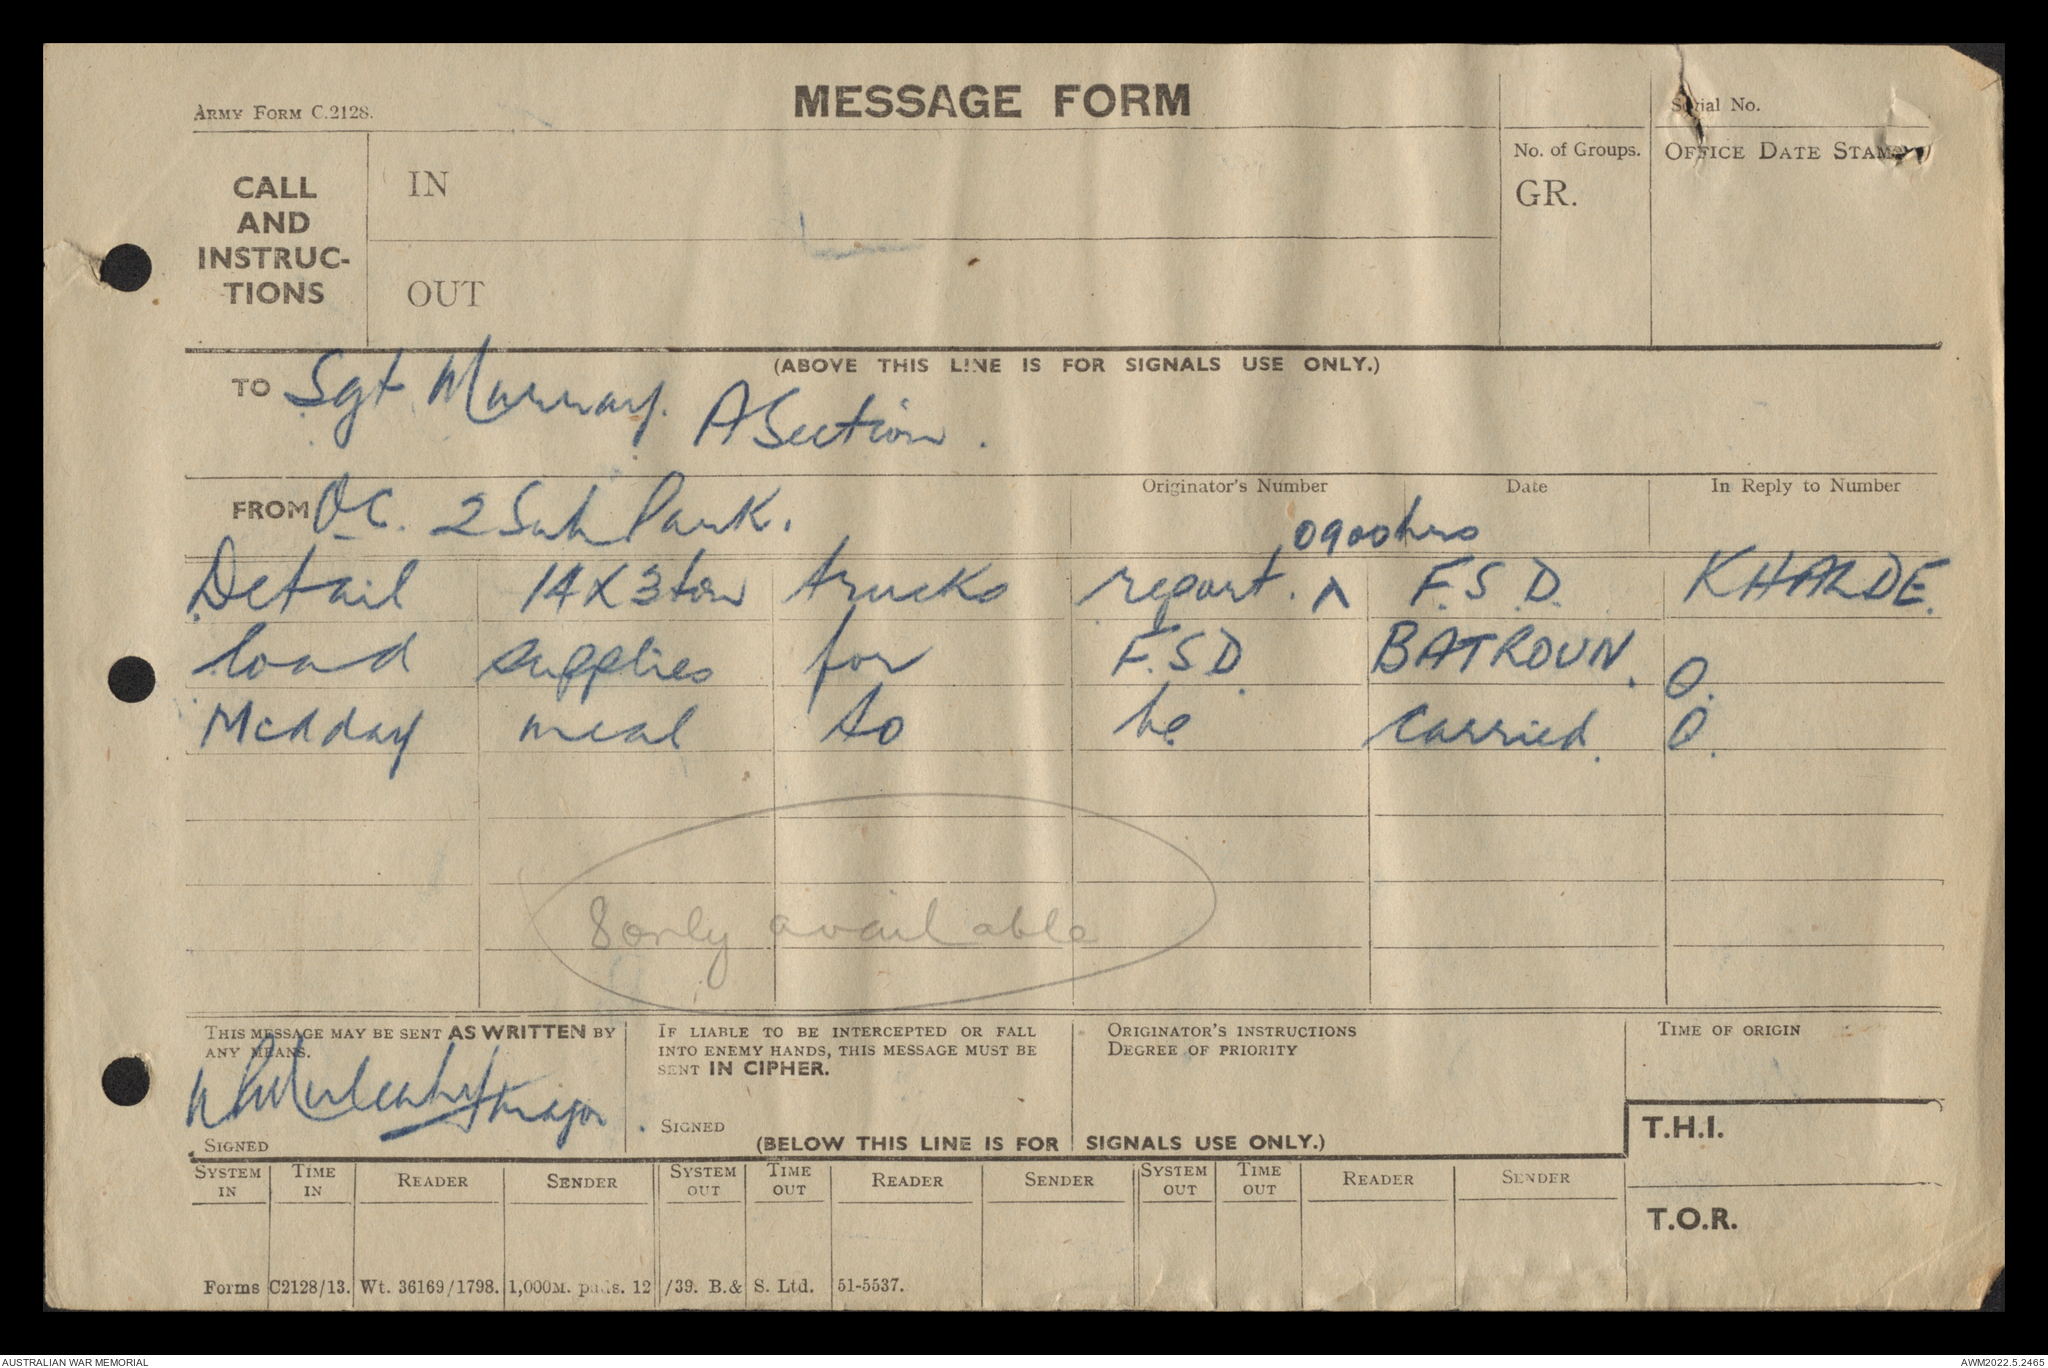 MESSAGE FORM
ARMY FORM C.2128.
Serial No.
CALL AND INSTRUC-TIONS
IN
No. of Groups.
GR.
OFFICE DATE STAMP
OUT
(ABOVE THIS LINE IS FOR SIGNALS USE ONLY.)
TO Sgt Murray. A Section.
FROM OC. 2 Sub Park.
Originator's Number Date In Reply to Number
0900hrs
Detail 14 X 3ton trucks report. ^ F.S.D. KHALDE.
load supplies for F.S.D. BATROUN. O.
Midday meal to be carried. O.
8 only available
THIS MESSAGE MAY BE SENT AS WRITTEN BY ANY MEANS.
Major.
SIGNED
IF LIABLE TO BE INTERCEPTED OR FALL INTO ENEMY HANDS, THIS MESSAGE MUST BE SENT IN CIPHER.
SIGNED
ORIGINATOR'S INSTRUCTIONS
DEGREE OF PRIORITY
TIME OF ORIGIN
T.H.I.
(BELOW THIS LINE IS FOR SIGNALS USE ONLY.)
SYSTEM IN TIME IN READER SENDER SYSTEM OUT TIME OUT READER SENDER SYSTEM OUT TIME OUT READER SENDER
T.O.R.
Forms C2128/13. Wt. 36169/1798. 1,000M. pads. 12/39. B.& S. Ltd. 51-5537.
AUSTRALIAN WAR MEMORIAL
AWM2022.5.2465